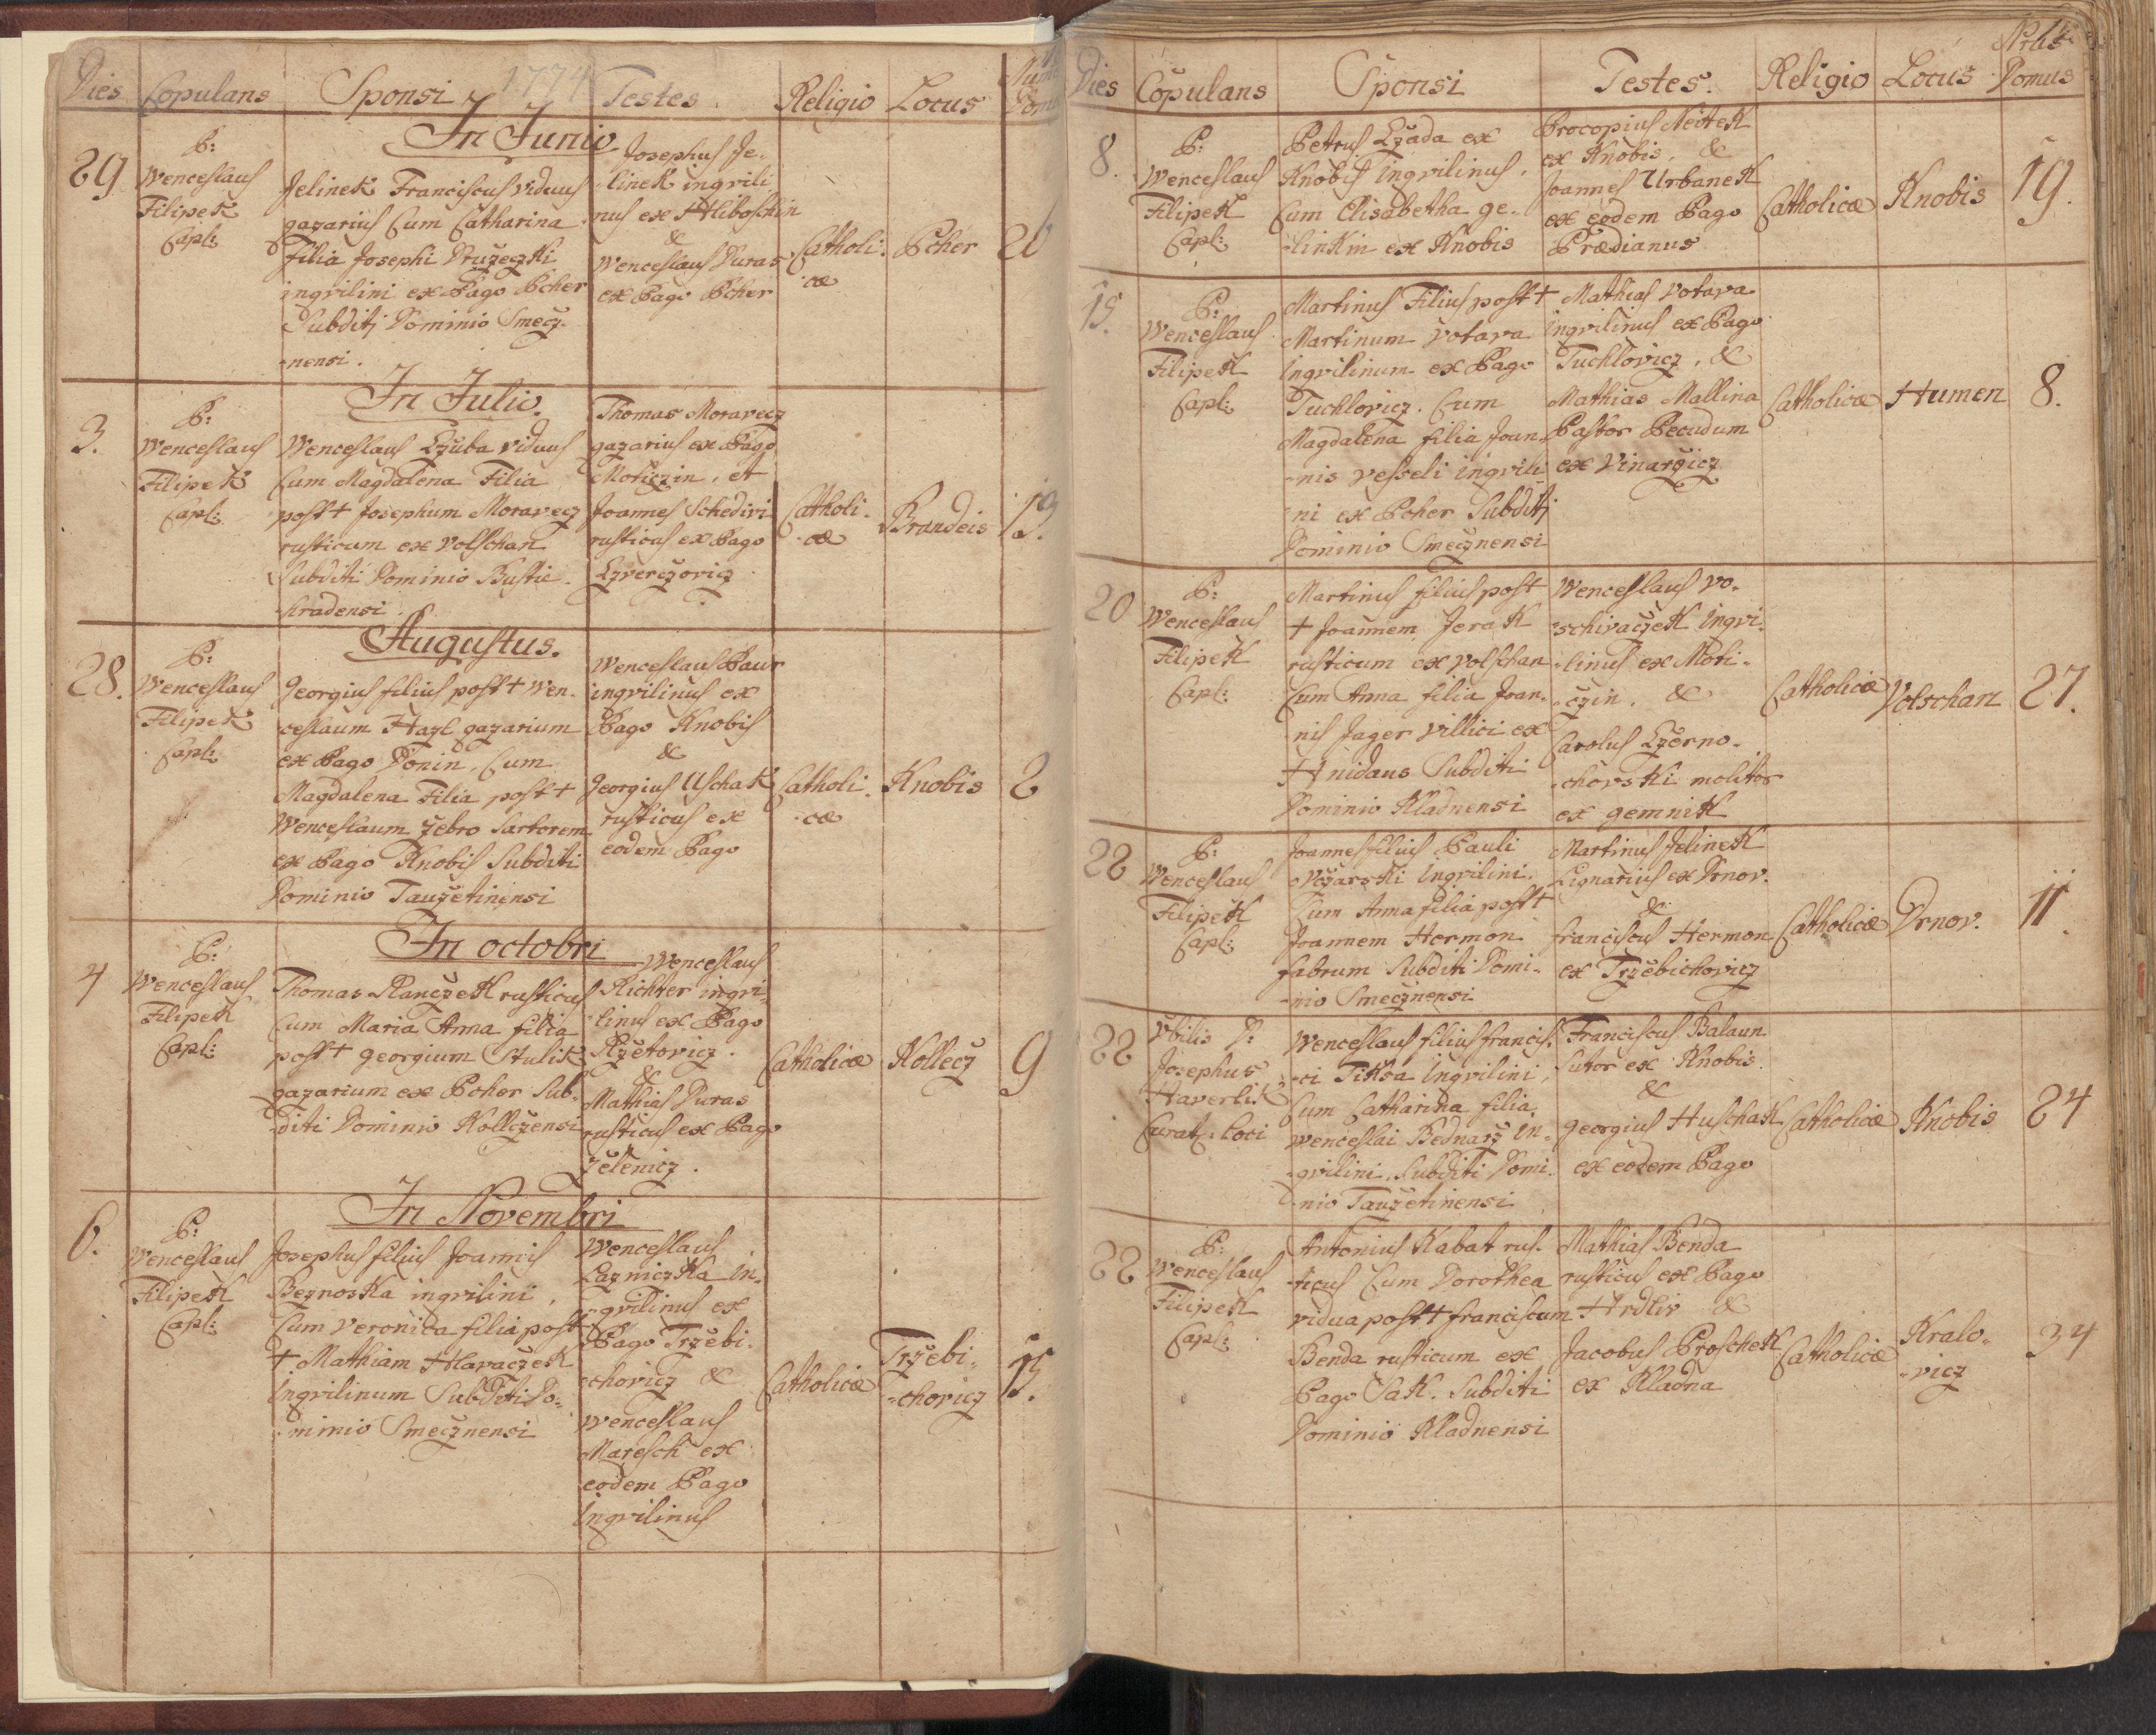 1774
Dies Copulans Sponsi Testes Religio Locus
In Junio
29
P:
Wenceslaus
Filipek
Capl:
Jelinek Franciscus viduus
gazarius Cum Catharina
Filia Josephi Druzeczki
inqvilini ex Pago Pcher
Subditj Dominio Smecz-
-nensi.
Josephus Je-
-linek inqvili
nus ex Hliboschin
&
Wenceslaus Duras
ex Pago Pcher
Catholi-
-cæ
Pcher
26
In Julio.
3.
P:
Wenceslaus
Filipek
Capl:
Wenceslaus Czuba viduus
Cum Magdalena Filia
post + Josephum Moravecz
rusticum ex Volschan
Subditi Dominio Bustie-
-hradensi.
Thomas Moravecz
gazarius ex Pago
Moticzin, et
Joannes Schediwi
rusticus ex Pago
Czverczovicz
Catholi-
-cæ
Brandeis
19.
Augustus.
28.
P:
Wenceslaus
Filipek
Capl:
Georgius filius post + Wen-
ceslaum Hazl gazarium
ex Pago Donin, Cum
Magdalena Filia post +
Wenceslaum Zebro Sartorem
ex Pago Knobis Subditi
Dominio Tauzetinensi
Wenceslaus Baur
inqvilinus ex
Pago Knobis
&
Georgius Uschak
rusticus ex
eodem Pago
Catholi-
-cæ
Knobis
2
In octobri
4
P:
Wenceslaus
Filipek
Capl:
Thomas Ranczek rusticus
Cum Maria Anna filia
post + Georgium Stulik
gazarium ex Pcher Sub-
diti Dominio Kollczensi
Wenceslaus
Richter inqvi-
linus ex Pago
Rzetovicz.
&
Mathias Duras
rusticus ex Pago
Zelenicz.
Catholicæ
Kollecz
9
In Novembri
6.
P:
Wenceslaus
Filipek
Capl:
Josephus filius Joannis
Beznoska inqvilini,
Cum Veronica filia post
+ Mathiam Hlavaczek
Inqvilinum Subditi Do-
minio Smecznensi
Wenceslaus
Lazniczka In-
-qvilinus ex
Pago Trzebi-
-chovicz &
Wenceslaus
Maresch ex
eodem Pago
Inqvilinus
Catholicæ
Trzebi-
-chovicz
15.
Dies Copulans Sponsi Testes. Religio Locus Nrus
Domus
8.
P:
Wenceslaus
Filipek
Capl:
Petrus Czada ex
Knobis Inqvilinus,
Cum Elisabetha Ge-
-linkin ex Knobis
Procopius Neitek
ex Knobis, &
Joannes Urbanek
ex eodem Pago
Prædianus
Catholicæ
Knobis
19.
15.
P:
Wenceslaus
Filipek
Capl:
Martinus Filius post +
Martinum Votava
Inqvilinum ex Pago
Tuchlovicz. Cum
Magdalena filia Joan-
-nis Vesseli inqvili-
-ni ex Pcher Subditj
Dominio Smecznensi
Mathias Votava
inqvilinus ex Pago
Tuchlovicz, &
Mathias Mallina
Pastor Pecudum
ex Vinarzicz
Catholicæ
Humen
8.
20
P:
Wenceslaus
Filipek
Capl:
Martinus filius post
+ Joannem Jerak
rusticum ex Volschan
Cum Anna filia Joan-
nis Jager Villici ex
Hnidaus Subditi
Dominio Kladnensi
Wenceslaus Vo-
-schivaczek Inqvi-
-linus ex Moti-
-czin, &
Carolus Czerno-
-chovski molitor
ex Gemnik
Catholicæ
Volschan
27.
22
P:
Wenceslaus
Filipek
Capl:
Joannes filius Pauli
Ovczarski Inqvilini.
Cum Anna filia post +
Joannem Hermon
fabrum Subditi Domi-
-nio Smecznensi
Martinus Jelinek
Lignarius ex Drnov.
&
Franciscus Hermon
ex Trzebichovicz
Catholicæ
Drnov.
11.
22
Josephus
Haverlik
Curat: loci
Wenceslaus filius Francis-
-ci Tiksa Inqvilini,
Cum Catharina filia
Wenceslai Bednarz In-
-qvilini, Subditi Domi-
-nio Tauzetinensi
Franciscus Balaun
Sutor ex Knobis
&
Georgius Huschak
ex eodem Pago
Catholicæ
Knobis
24
22
P:
Wenceslaus
Filipek
Capl:
Antonius Kabat rus-
-ticus Cum Dorothea
vidua post + Franciscum
Benda rusticum ex
Pago Sak. Subditi
Dominio Kladnensi
Mathias Benda
rusticus ex Pago
Hrdliv &
Jacobus Proschek
ex Kladna
Catholicæ
Kralo-
-vicz
34